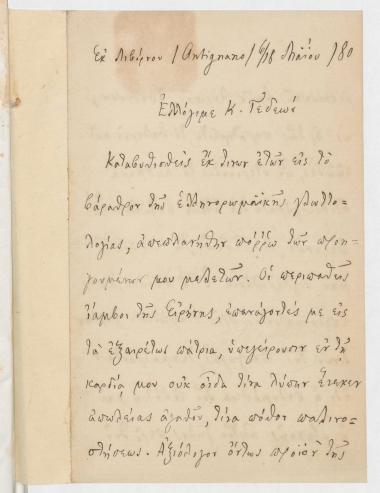 Ἐκ Λιβόρνου (Antignano) 6/18 Μαΐου / 80
Ἐλλόγιμε Κ. Γεδεών
Καταβυθισθεὶς ἔκ τινων ἐτῶν εἰς τὸ
βάραθρον τῆς ἑλληνορωμαϊκῆς γλωττο-
λογίας, ἀπεπλανήθην πόρρω τῶν προη-
γουμένων μου μελετῶν. Οἱ περιπαθεῖς
ἴαμβοι τῆς Εἰρήνης, ἐπανάγοντές με εἰς
τὰ ἐξαιρέτως πάτρια, ὑπεγείρουσιν ἐν τῇ
καρδίᾳ μου οὐκ οἶδα τίνα λύπην ἕνεκεν
ἀπωλείας ἀγαθῶν, τίνα πόθον παλινο-
στήσεως. Ἀξιόλογον ὄντως προϊὸν τῆς